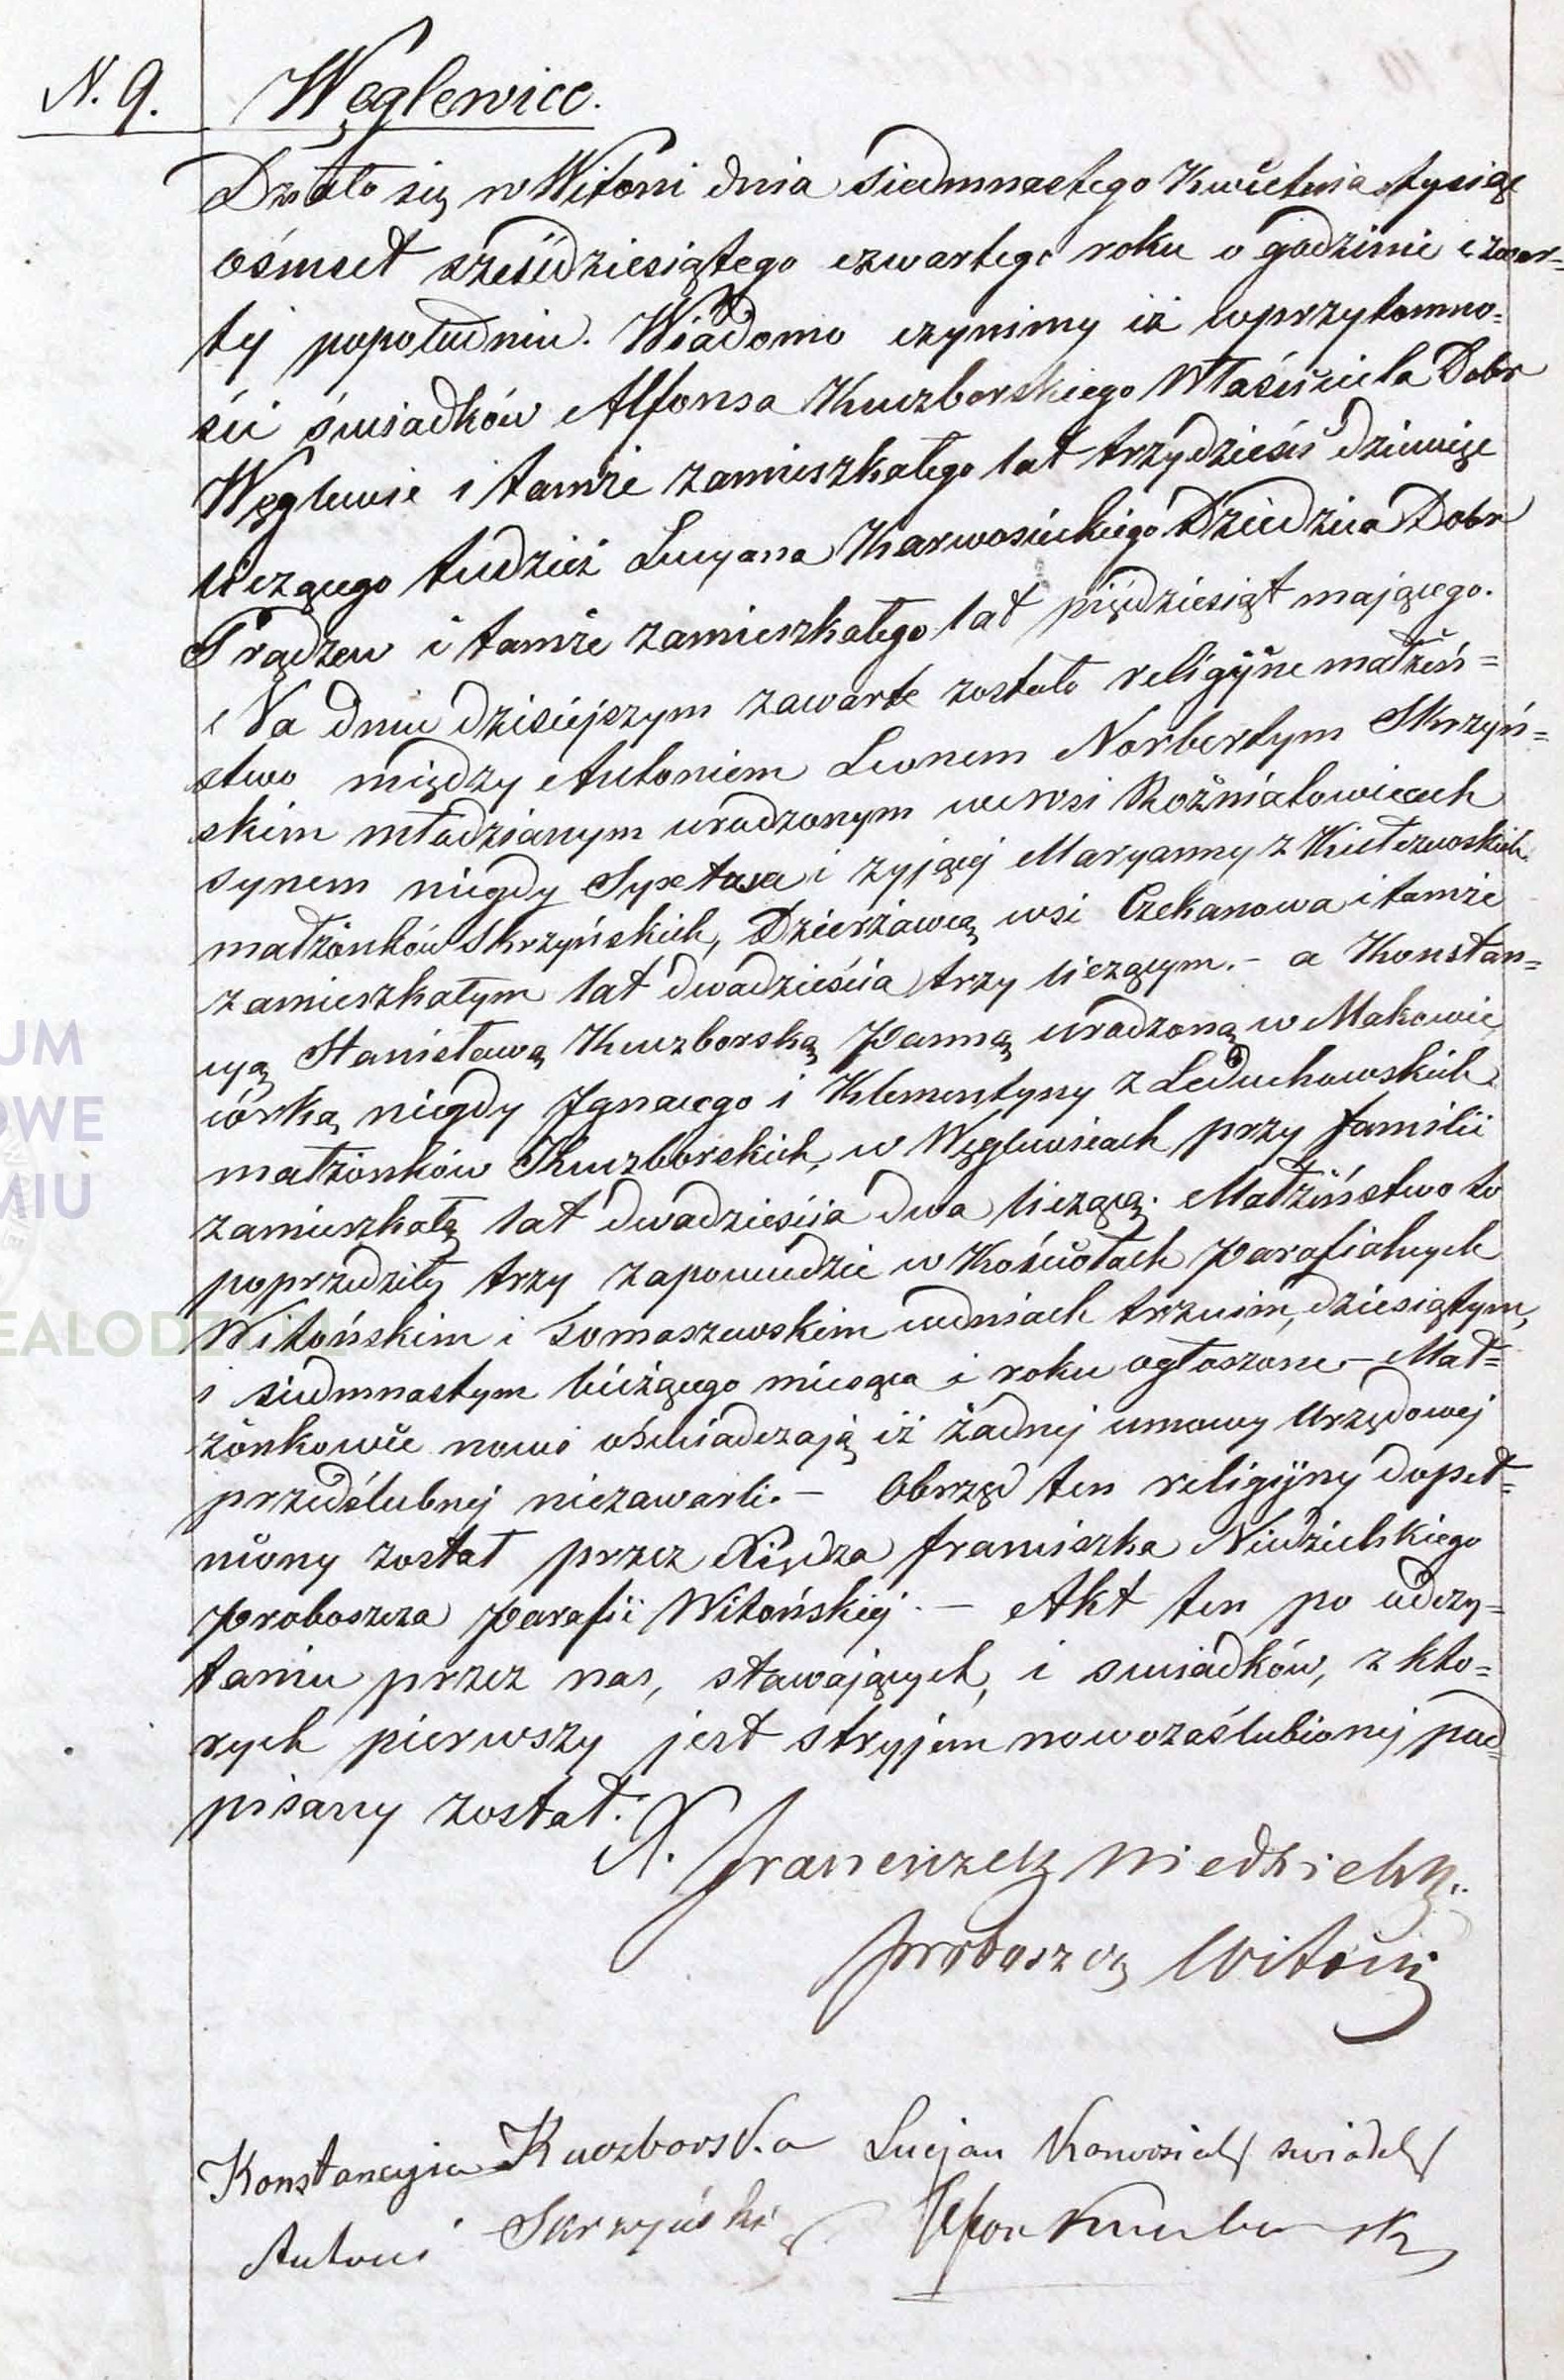 N. 9. Węglewice.
Działo się w Witoni dnia siedmnastego Kwietnia tysiąc
ośmset sześdziesiątego czwartego roku o godzinie czwar=
tej popołudniu. Wiadomo czynimy iż wprzytomno=
ści świadków Alfonsa Kuczborskiego Właściciela Dobr
Węglewic i tamże zamieszkałego lat trzydzieści dziewięć
liczącego tudzież Lucyana Karwosieckiego Dziedzica Dobr
Prądzew i tamże zamieszkałego lat pięćdziesiąt mającego.
Na dniu dzisiejszym zawarte zostało religijne małżeń=
stwo między Antonim Leonem Norbertym Skrzyń=
skim młodzianym urodzonym we wsi Rożniatowicach
synem niegdy Syxtusa i żyjącej Maryanny z Kiełczewskich
małżonków Skrzyńskich, Dzierżawcą wsi Czekanowa i tamże
zamieszkałym lat dwadzieścia trzy liczącym. – a Konstan=
cyą Stanisławą Kuczborską Panną urodzoną w Makowie
córką niegdy Ignacego i Klementyny z Leduchowskich
małżonków Kuczborskich, w Węglewicach przy familii
zamieszkałą lat dwadzieścia dwa liczącą. Małżeństwo to
poprzedziły trzy zapowiedzie w Kościołach Parafialnych
Witońskim i Tomaszewskim wdniach trzecim, dziesiątym,
i siedmnastym bieżącego miesąca i roku ogłoszone – Mał=
żonkowie nowi oświadczają iż żadnej umowy Urzędowej
przedślubnej niezawarli. – Obrzęd ten religijny dopeł=
niony został przez Xiędza Franciszka Niedzielskiego
Proboszcza Parafii Witońskiej. – Akt ten po odczy=
taniu przez nas, stawających, i swiadków, z kto=
rych pierwszy jest stryjem nowozaślubionej pod=
pisany został.
X. Franciszek Niedzielski
proboszcz Witoni
Konstancyia Kuczborska Lucjan Karwosiecki swiadek
Antoni Skrzyński Alfons Kuczborski